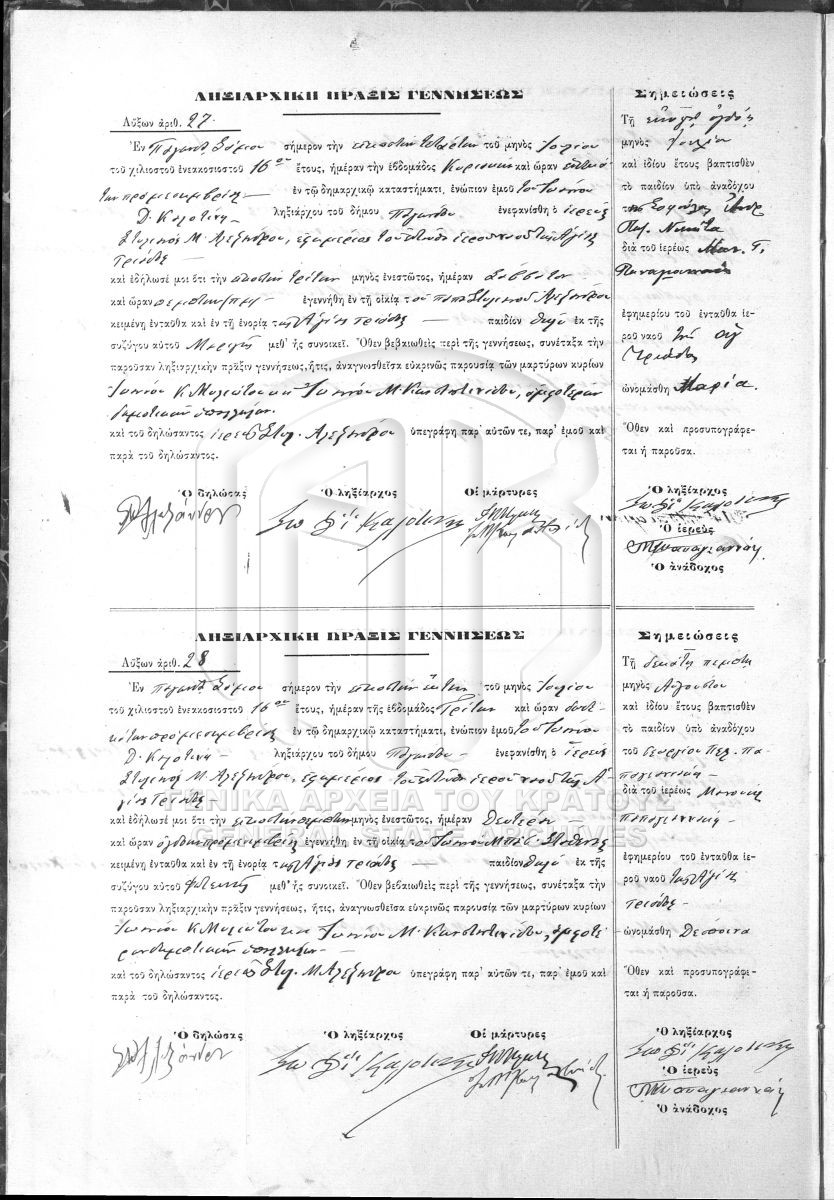 ΛΗΞΙΑΡΧΙΚΗ ΠΡΑΞΙΣ ΓΕΝΝΗΣΕΩΣ
Αὔξων ἀριθ. 27.
Ἐν Παγώνδ. Σάμου σήμερον τὴν εἰκοστὴν τετάρτην τοῦ μηνὸς Ἰουλίου
τοῦ χιλιοστοῦ ἐνεακοσιοστοῦ 16ου ἔτους, ἡμέραν τὴν ἑβδομάδος Κυριακὴν καὶ ὥραν
προμεσημβρίας ἐν τῷ δημαρχικῷ καταστήματι, ἐνώπιον ἐμοῦ τοῦ Ἰωάννου
Δ. ληξιάρχου τοῦ δήμου Παγώνδου ἐνεφανίσθη ὁ ἱερεὺς
Στυλιανὸς Μ. Ἀλεξάνδρου, ἐφημέριος τοῦ ἐνταῦθα ἱεροῦ ναοῦ τῆς Ἁγίας
Τριάδος
καὶ ἐδήλωσέ μοι ὅτι τὴν εἰκοστὴν τρίτην μηνὸς ἐνεστῶτος, ἡμέραν Σάββατον
καὶ ὥραν πέμπτην μμ ἐγεννήθη ἐν τῇ οἰκίᾳ τοῦ παπᾶ Στυλιανοῦ Ἀλεξάνδρου
κειμένῃ ἐνταῦθα καὶ ἐν τῇ ἐνορίᾳ τῆς Ἁγίας Τριάδος παιδίον θῆλυ ἐκ τῆς
συζύγου αὐτοῦ μεθ' ἧς συνοικεῖ. Ὅθεν βεβαιωθεὶς περὶ τῆς γεννήσεως, συνέταξα τὴν
παροῦσαν ληξιαρχικὴν πρᾶξιν γεννήσεως, ἥτις, ἀναγνωσθεῖσα εὐκρινῶς παρουσίᾳ τῶν μαρτύρων κυρίων
Ἰωάννου Κ. καὶ Ἰωάννου Μ. Κωνσταντινίδου, ἀμφοτέρων
δημοτικῶν ὑπαλλήλων.
καὶ τοῦ δηλώσαντος ἱερέως Στυλ. Ἀλεξάνδρου ὑπεγράφη παρ' αὐτῶν τε, παρ' ἐμοῦ καὶ
παρὰ τοῦ δηλώσαντος.
Ὁ δηλώσας Ὁ ληξίαρχος Οἱ μάρτυρες
Σημειώσεις
Τῇ εἰκοστῇ ὀγδόῃ
μηνὸς Ἰουλίου
καὶ ἰδίου ἔτους βαπτισθὲν
τὸ παιδίον ὑπὸ ἀναδόχου
Νικήτα
διὰ τοῦ ἱερέως Μαν. Γ.
ἐφημερίου τοῦ ἐνταῦθα ἱε-
ροῦ ναοῦ τῆς Ἁγ
Τριάδος
ὠνομάσθη Μαρία.
Ὅθεν καὶ προσυπογράφε-
ται ἡ παροῦσα.
Ὁ ληξίαρχος
Ὁ ἱερεὺς
Ὁ ἀνάδοχος
ΛΗΞΙΑΡΧΙΚΗ ΠΡΑΞΙΣ ΓΕΝΝΗΣΕΩΣ
Αὔξων ἀριθ. 28
Ἐν Παγώνδ. Σάμου σήμερον τὴν εἰκοστὴν ἕκτην τοῦ μηνὸς Ἰουλίου
τοῦ χιλιοστοῦ ἐνεακοσιοστοῦ 16ου ἔτους, ἡμέραν τῆς ἑβδομάδος Τρίτην καὶ ὥραν δεκά-
την προμεσημβρίας ἐν τῷ δημαρχικῷ καταστήματι, ἐνώπιον ἐμοῦ τοῦ Ἰωάννου
Δ. ληξιάρχου τοῦ δήμου Παγώνδου ἐνεφανίσθη ὁ ἱερεὺς
Στυλιανὸς Μ. Ἀλεξάνδρου, ἐφημέριος τοῦ ἐνταῦθα ἱεροῦ ναοῦ τῆς Ἁ-
γίας Τριάδος
καὶ ἐδήλωσέ μοι ὅτι τὴν εἰκοστὴν πέμπτην μηνὸς ἐνεστῶτος, ἡμέραν Δευτέραν
καὶ ὥραν ὀγδόην προμεσημβρίας ἐγεννήθη ἐν τῇ οἰκίᾳ τοῦ Ἰωάννου
κειμένῃ ἐνταῦθα καὶ ἐν τῇ ἐνορίᾳ τῆς Ἁγίας Τριάδος παιδίον θῆλυ ἐκ τῆς
συζύγου αὐτοῦ Φωτεινῆς μεθ' ἧς συνοικεῖ. Ὅθεν βεβαιωθεὶς περὶ τῆς γεννήσεως, συνέταξα τὴν
παροῦσαν ληξιαρχικὴν πρᾶξιν γεννήσεως, ἥτις, ἀναγνωσθεῖσα εὐκρινῶς παρουσίᾳ τῶν μαρτύρων κυρίων
Ἰωάννου Κ. καὶ Ἰωάννου Μ. Κωνσταντινίδου, ἀμφοτέ-
ρων δημοτικῶν ὑπαλλήλων
καὶ τοῦ δηλώσαντος ἱερέως Στυλ. Μ. Ἀλεξάνδρου ὑπεγράφη παρ' αὐτῶν τε, παρ' ἐμοῦ καὶ
παρὰ τοῦ δηλώσαντος.
Ὁ δηλώσας Ὁ ληξίαρχος Οἱ μάρτυρες
Σημειώσεις
Τῇ δεκάτῃ πέμπτῃ
μηνὸς Αὐγούστου
καὶ ἰδίου ἔτους βαπτισθὲν
τὸ παιδίον ὑπὸ ἀναδόχου
τοῦ Γεωργίου Πα-
παγιαννάκη
διὰ τοῦ ἱερέως Μανουὴλ
Παπαγιαννάκη
ἐφημερίου τοῦ ἐνταῦθα ἱε-
ροῦ ναοῦ τῆς Ἁγίας
Τριάδος
ὠνομάσθη Δέσποινα
Ὅθεν καὶ προσυπογράφε-
ται ἡ παροῦσα.
Ὁ ληξίαρχος
Ὁ ἱερεὺς
Ὁ ἀνάδοχος
ΓΕΝΙΚΑ ΑΡΧΕΙΑ ΤΟΥ ΚΡΑΤΟΥΣ
GENERAL STATE ARCHIVES